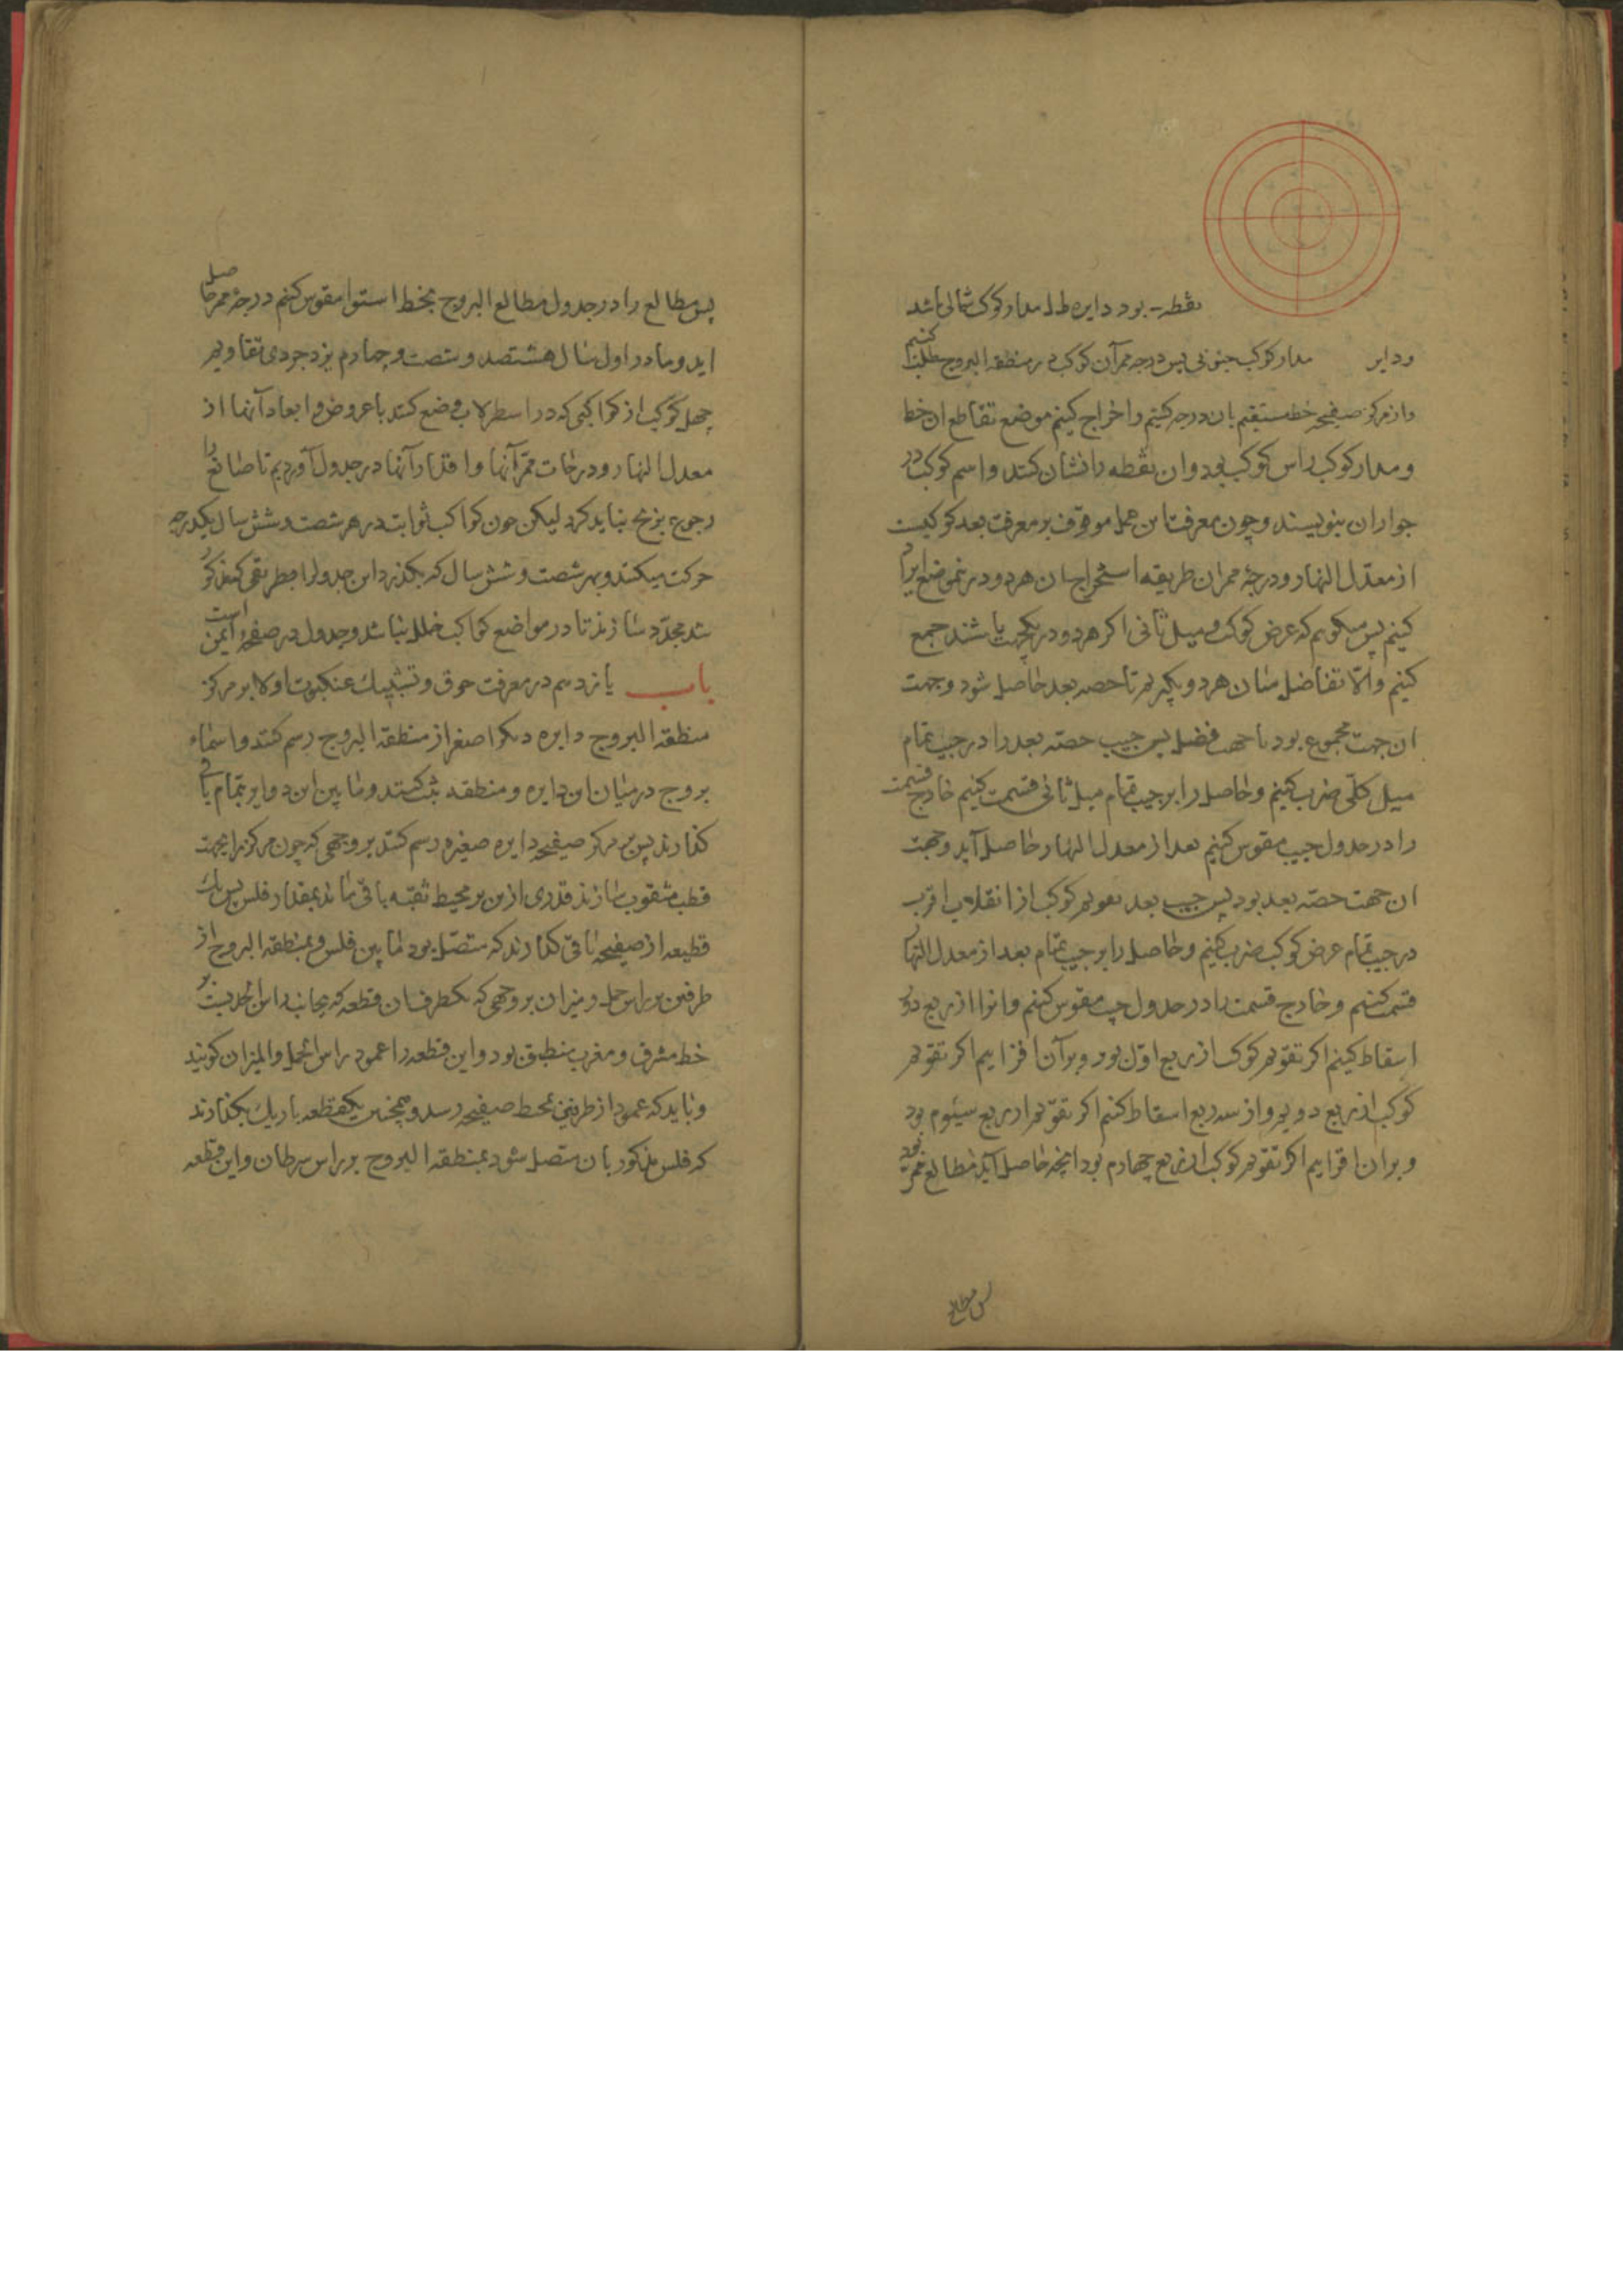 نقطه بود دایره طل مدار کوکب شمالی باشد
ودایر مدار کوکب جنوبی پس درجه ممر آن کوکب در منطقه البروج طلب کنیم
واز مرکز صفیحه خط مستقیم بان درجه کنیم واخراج کنیم موضع تقاطع ان خط
ومدار کوکب راس کوکب بود وان نقطه را نشان کنند واسم کوکب در
جوار ان بنویسند وچون معرفت این عمل موقوف بر معرفت بعد کوکبست
از معدل النهار ودرجۀ ممر ان طریقه استخراج ان هر دو درین موضع ایراد
کنیم پس میکویم که عرض کوکب ومیل ثانی اکر هر دو در یکجهت باشند جمع
کنیم والا تفاضل میان هر دو بگیریم تا حصه بعد حاصل شود وجهت
ان جهت مجموع بود یا جهت فضل پس جیب حصه بعد را در جیب تمام
میل کلی ضرب کنیم وحاصل را بر جیب تمام میل ثانی قسمت کنیم خارج قسمت
را در جدول جیب مقوس کنیم بعد از معدل النهار حاصل آید وجهت
ان جهت حصه بعد بود پس جیب بعد تقویم کوکب از انقلاب اقرب
در جیب تمام عرض کوکب ضرب کنیم وحاصل را بر جیب تمام بعد از معدل النهار
قسمت کنیم وخارج قسمت را در جدول جیب مقوس کنیم وانرا از ربع دور
اسقاط کنیم اکر تقویم کوکب از ربع اول بود وبر آن افزاییم اکر تقویم
کوکب از ربع دویم واز سه ربع اسقاط کنیم اکر تقویم از ربع سیوم بود
وبر ان افزاییم اکر تقویم کوکب از ربع چهارم بود انچه حاصل آید مطالع ممر بود
پس مطالع
پس مطالع را در جدول مطالع البروج بخط استوا مقوس کنیم درجۀ ممر حاصل
اید وما در اول سال هشتصد وشصت وچهارم یزدجردی تقاویم
چهل کوکب از کواکبی که در اسطرلاب وضع کنند با عروض وابعاد آنها از
معدل النهار ودرجات ممر آنها واقدار آنها در جدول آوردیم تا صانع را
رجوع بزیج نباید کرد لیکن چون کواکب ثوابت در هر شصت وشش سال یکدرجه
حرکت میکنند وهر شصت وشش سال که بگذرد این جدول را بطریقی که مذکور
شد مجدد سازند تا در مواضع کواکب خلل نباشد وجدول در صفحۀ ایمن است
باب یازدهم در معرفت حرق وتشبیک عنکبوت اولا بر مرکز
منطقه البروج دایره دیگر اصغر از منطقه البروج رسم کنند واسماء
بروج در میان این دایره ومنطقه ثبت کنند وما بین این دوایر بتمام باقی
کذارند پس بر مرکز صفیحه دایره صغیره رسم کنند بر وجهی که چون مرکز برای جهت
قطب مثقوب سازند قدری ازین بر محیط ثقبه باقی ماند بمقدار فلس پس یک
قطعه از صفیحه باقی کذارند که متصل بود ما بین فلس ومنطقه البروج از
طرفین بر راس حمل ومیزان بر وجهی که یکطرف ان قطعه که بجانب راس الجدیست بر
خط مشرق ومغرب منطبق بود واین قطعه را عمود راس الحمل والمیزان کویند
وباید که عمود از طرفین بمحیط صفیحه رسد وهمچنین یکقطعه باریک بکذارند
که فلس مذکور بان متصل شود بمنطقه البروج بر راس سرطان واین قطعه